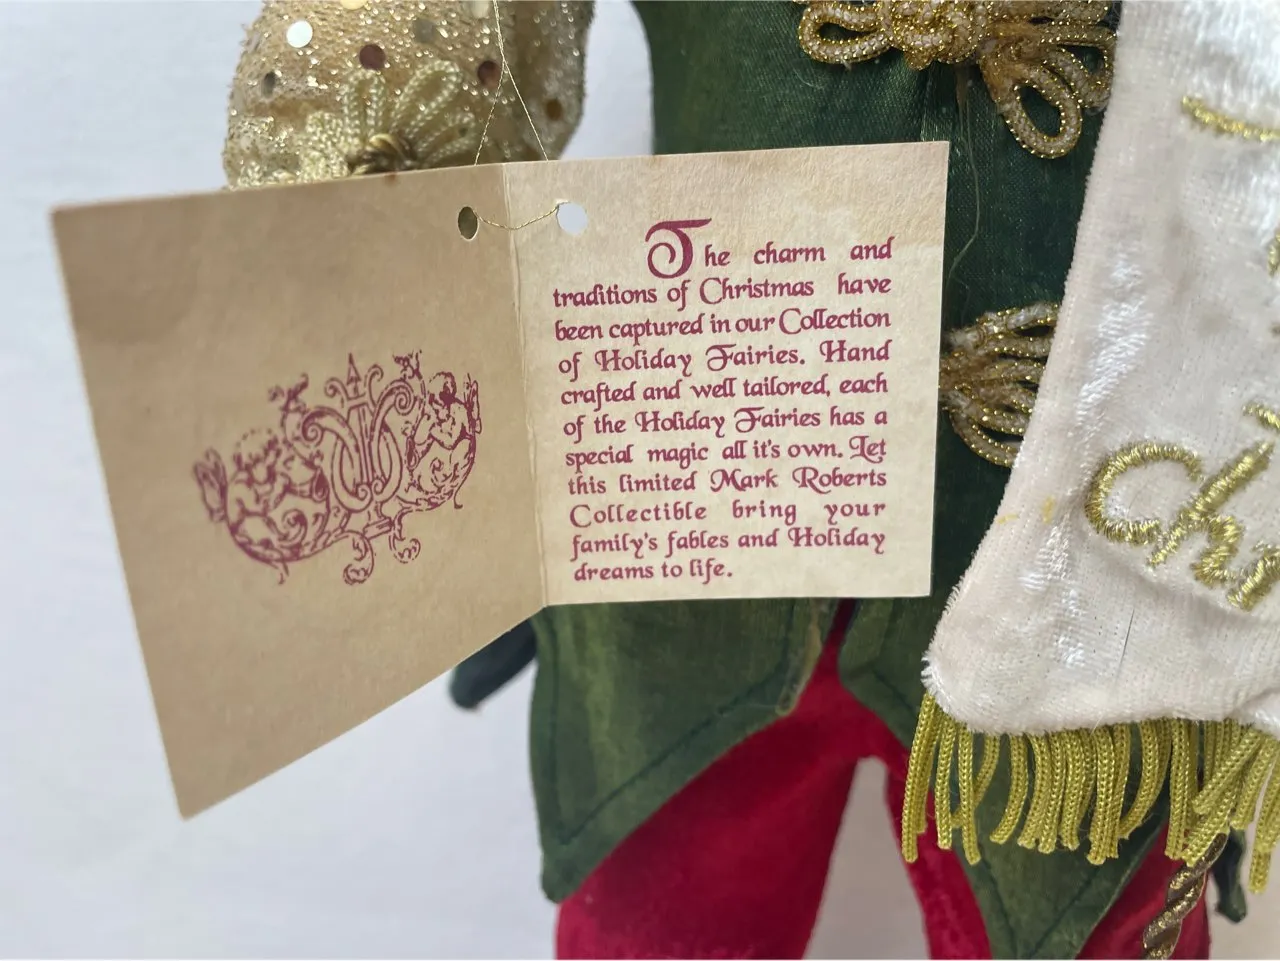 The charm and
traditions of Christmas have
been captured in our Collection
of Holiday Fairies. Hand
crafted and well tailored, each
of the Holiday Fairies has a
special magic all it's own. Let
this limited Mark Roberts
Collectible bring your
family's fables and Holiday
dreams to life.
Chr